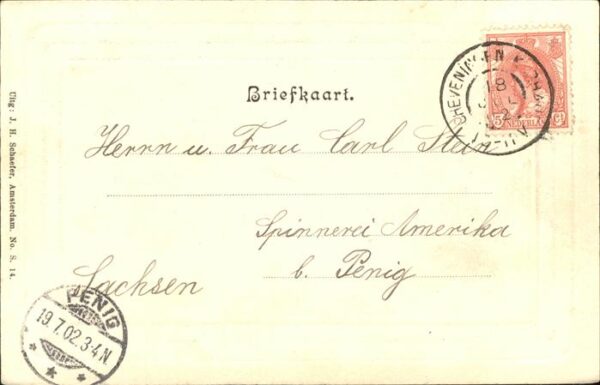 Briefkaart.
Herrn u. Frau Carl Stein
Spinnerei Amerika
b. Penig
Sachsen
Uitg: J. H. Schaefer, Amsterdam. No. S. 14.
SCHEVENINGEN
18
5
NEDERLAND
PENIG
19.7.02.3-4N.